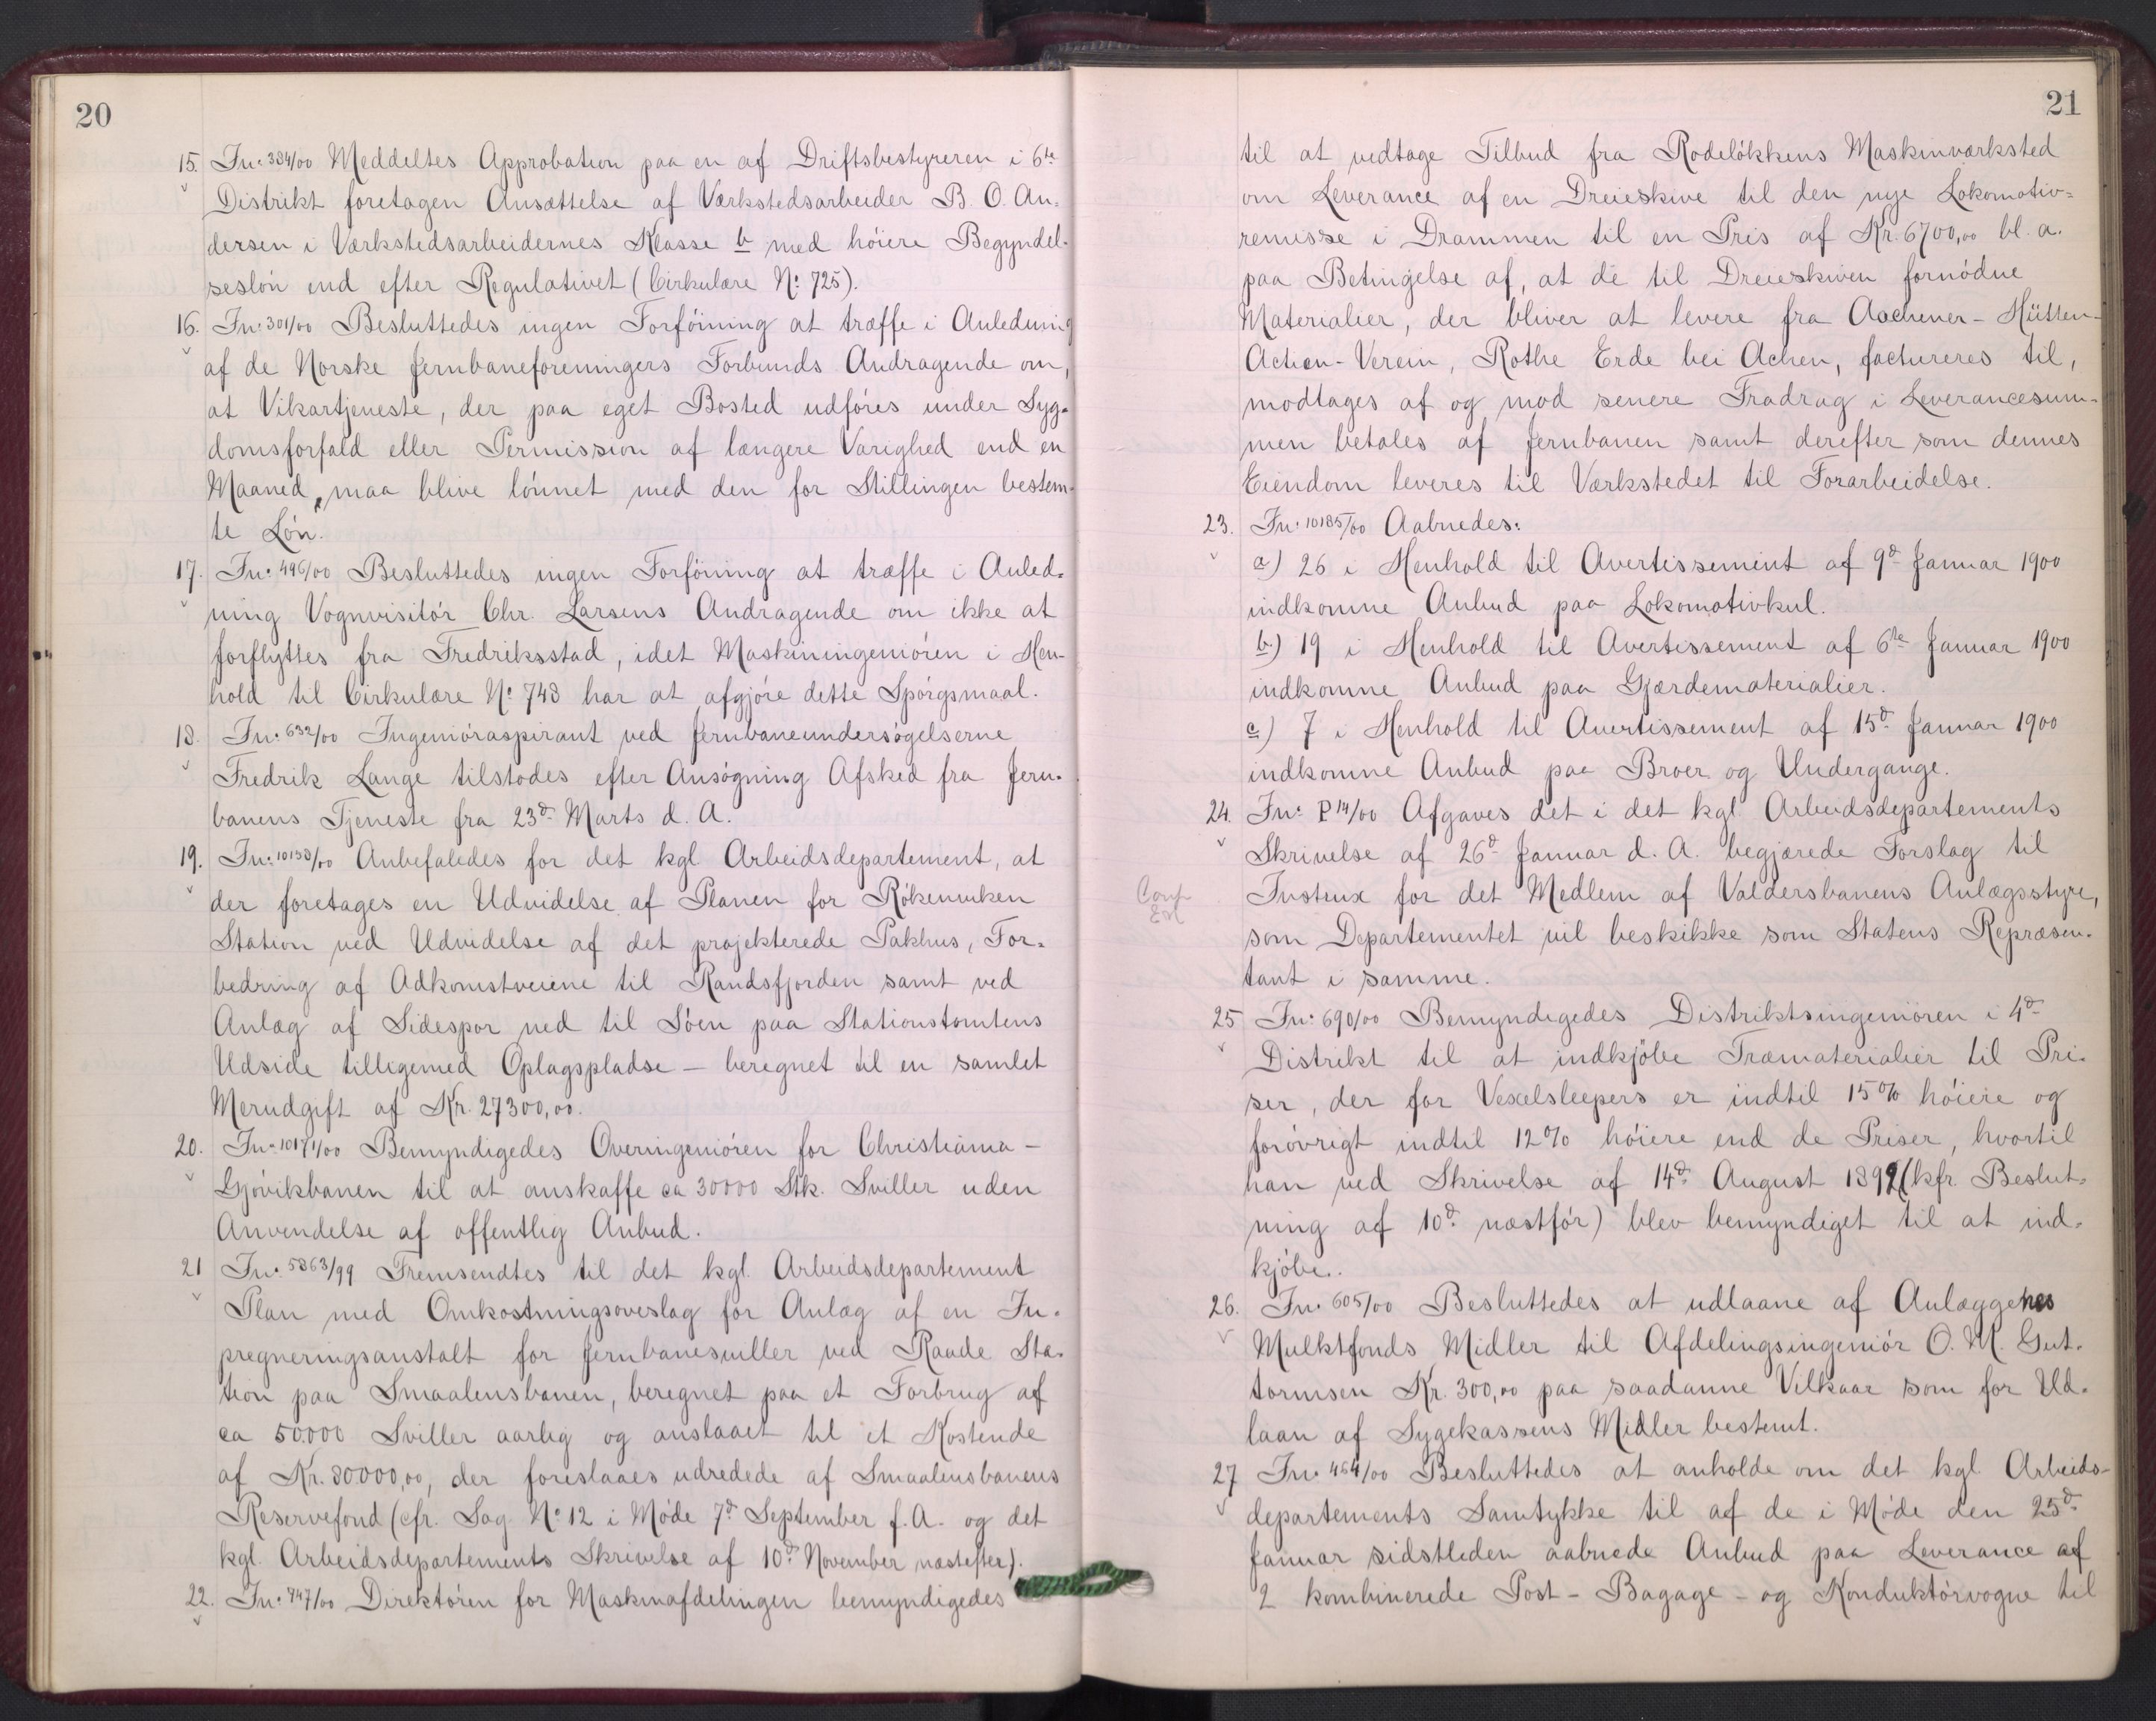 20
15. Jn: 384/00 Meddeltes Approbation paa en af Driftsbestyreren i 6te
Distrikt foretagen Ansættelse af Værkstedsarbeider B. O. An-
dersen i Værkstedsarbeidernes Klasse b med høiere Begyndel-
sesløn end efter Regulativet (Cirkulære No 725).
16. Jn: 301/00 Besluttedes ingen Forføining at træffe i Anledning
af de Norske Jernbaneforeningers Forbunds Andragende om,
at Vikartjeneste, der paa eget Bosted udføres under Syg-
domsforfald eller Permission af længere Varighed end en
Maaned, maa blive lønnet med den for Stillingen bestem-
te Løn.
17. Jn: 496/00 Besluttedes ingen Forføining at træffe i Anled-
ning Vognvisitør Chr. Larsens Andragende om ikke at
forflyttes fra Fredriksstad, idet Maskiningeniøren i Hen-
hold til Cirkulære No 748 har at afgjøre dette Spørgsmaal.
18. Jn: 632/00 Ingeniøraspirant ved Jernbaneundersøgelserne
Fredrik Lange tilstodes efter Ansøgning Afsked fra Jern-
banens Tjeneste fra 23d Marts d. A.
19. Jn: 10158/00 Anbefaledes for det kgl Arbeidsdepartement, at
der foretages en Udvidelse af Planen for Røkenviken
Station ved Udvidelse af det projekterede Pakhus, For-
bedring af Adkomstveiene til Randsfjorden samt ved
Anlæg af Sidespor ned til Søen paa Stationstomtens
Udside tilligemed Oplagspladse – beregnet til en samlet
Merudgift af Kr. 27300,00.
20. Jn: 10171/00 Bemyndigedes Overingeniøren for Christiania –
Gjøvikbanen til at anskaffe ca 30000 Stk. Sviller uden
Anvendelse af offentlig Anbud.
21 Jn: 5863/99 Fremsendtes til det kgl. Arbeidsdepartement
Plan med Omkostningsoverslag for Anlæg af en Im-
pregneringsanstalt for Jernbanesviller ved Raade Sta-
tion paa Smaalensbanen, beregnet paa et Forbrug af
ca 50.000 Sviller aarlig og anslaaet til et Kostende
af Kr. 80000,00, der foreslaaes udredede af Smaalensbanens
Reservefond (cfr. Sag No 12 i Møde 7d September f. A. og det
kgl. Arbeidsdepartements Skrivelse af 10d November næstefter).
22. Jn: 747/00 Direktøren for Maskinafdelingen bemyndigedes
21
til at vedtage Tilbud fra Rodeløkkens Maskinværksted
om Leverance af en Dreieskive til den nye Lokomotiv-
remisse i Drammen til en Pris af Kr. 6700,00 bl. a.
paa Betingelse af, at de til Dreieskiven fornødne
Materialier, der bliver at levere fra Aachener-Hütten-
Actien-Verein, Rothe Erde bei Achen, factureres til,
modtages af og mod senere Fradrag i Leverancesum-
men betales af Jernbanen samt derefter som dennes
Eiendom leveres til Værkstedet til Forarbeidelse.
23. Jn: 10185/00 Aabnedes:
a) 26 i Henhold til Avertissement af 9d Januar 1900
indkomne Anbud paa Lokomotivkul.
b) 19 i Henhold til Avertissement af 6te Januar 1900
indkomne Anbud paa Gjærdematerialier.
c) 7 i Henhold til Avertissement af 15d Januar 1900
indkomne Anbud paa Broer og Undergange.
24. Jn: P 14/00 Afgaves det i det kgl Arbeidsdepartements
Skrivelse af 26d Januar d. A. begjærede Forslag til
Instrux for det Medlem af Valdersbanens Anlægsstyre,
som Departementet vil beskikke som Statens Repræsen-
tant i samme.
25 Jn: 690/00 Bemyndigedes Distriktsingeniøren i 4d
Distrikt til at indkjøbe Træmaterialier til Pri-
ser, der for Vexelsleepers er indtil 15% høiere og
forøvrigt indtil 12% høiere end de Priser, hvortil
han ved Skrivelse af 14d August 1899 (kfr. Beslut-
ning af 10d næstfør) blev bemyndiget til at ind-
kjøbe.
26. Jn: 605/00 Besluttedes at udlaane af Anlæggenes
Mulktfonds Midler til Afdelingsingeniør O. M. Gut-
tormsen Kr. 300,00 paa saadanne Vilkaar som for Ud-
laan af Sygekassens Midler bestemt.
27 Jn: 464/00 Besluttedes at anholde om det kgl Arbeids-
departements Samtykke til af de i Møde den 25d
Januar sidstleden aabnede Anbud paa Leverance af
2 kombinerede Post- Bagage- og Konduktørvogne til